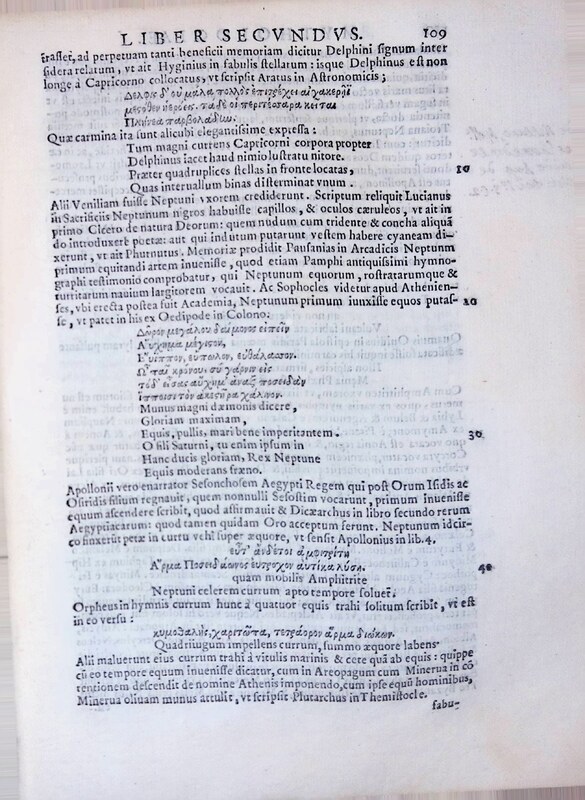 LIBER SECVNDVS. 109
trasset, ad perpetuam tanti beneficii memoriam dicitur Delphini signum inter
sidera relatum, vt ait Hyginius in fabulis stellarum: isque Delphinus est non
longè à Capricorno collocatus, vt scripsit Aratus in Astronomicis;
Δελφὶς δ' οὐ μάλα πολλὸς ἐπιτρέχει αἰγοκερῆϊ
μεσόθεν ἠερόεις. τὰ δέ οἱ περὶ τέσσαρα κεῖται
Quæ carmina ita sunt alicubi elegantissime expressa:
Tum magni currens Capricorni corpora propter
Delphinus iacet haud nimio lustratu nitore.
Præter quadruplices stellas in fronte locatas, 10
Quas interuallum binas disterminat vnum.
Alii Veniliam fuisse Neptuni vxorem crediderunt. Scriptum reliquit Lucianus
in Sacrificiis Neptunum nigros habuisse capillos, & oculos cæruleos, vt ait in
primo Cicero de natura Deorum: quem nudum cum tridente & concha aliquã
do introduxere poetæ: aut qui indutum putarunt vestem habere cyaneam di-
xerunt, vt ait Phurnutus. Memoriæ prodidit Pausanias in Arcadicis Neptunũ
primum equitandi artem inuenisse, quod etiam Pamphi antiquissimi hymno-
graphi testimonio comprobatur, qui Neptunum equorum, rostratarumque &
turritarum nauium largitorem vocauit. Ac Sophocles videtur apud Athenien-
ses, vbi erecta postea fuit Academia, Neptunum primum iunxisse equos putas- 20
se, vt patet in his ex Oedipode in Colono:
Δῶρον μεγάλου δαίμονος εἰπεῖν
Αὔχημα μέγιστον,
Εὔιππον, εὔπωλον, εὐθάλασσον.
Ὦ παῖ κρόνου, σὺ γάρ νιν εἰς
τόδ' εἷσας αὔχημ' ἄναξ ποσειδὰν
ἵπποισι τὸν ἀκεστῆρα χαλινὸν.
Munus magni dæmonis dicere,
Gloriam maximam,
Equis, pullis, mari bene imperitantem. 30
O fili Saturni, tu enim ipsum in
Hanc ducis gloriam, Rex Neptune
Equis moderans fræno.
Apollonii vero enarrator Sesonchosem Aegypti Regem qui post Orum Isidis ac
Osiridis filium regnauit, quem nonnulli Sesostim vocarunt, primum inuenisse
equum ascendere scribit, quod affirmauit & Dicæarchus in libro secundo rerum
Aegyptiacarum: quod tamen quidam Oro acceptum ferunt. Neptunum idcir-
co finxerũt poetæ in curru vehi super æquore, vt sensit Apollonius in lib. 4.
εὖτ' ἂν δέ τοι ἀμφιτρίτη
Ἅρμα Ποσειδάωνος εὔτροχον αὐτίκα λύσῃ. 40
quam mobilis Amphitrite
Neptuni celerem currum apto tempore soluet.
Orpheus in hymnis currum hunc à quatuor equis trahi solitum scribit, vt est
in eo versu:
τετράορον ἅρμα διώκων.
Quadriiugum impellens currum, summo æquore labens
Alii maluerunt eius currum trahi à vitulis marinis & cete quã ab equis: quippe
cũ eo tempore equum inuenisse dicatur, cum in Areopagum cum Minerua in cõ
tentionem descendit de nomine Athenis imponendo, cum ipse equũ hominibus,
Minerua oliuam munus attulit, vt scripsit Plutarchus in Themistocle.
fabu-